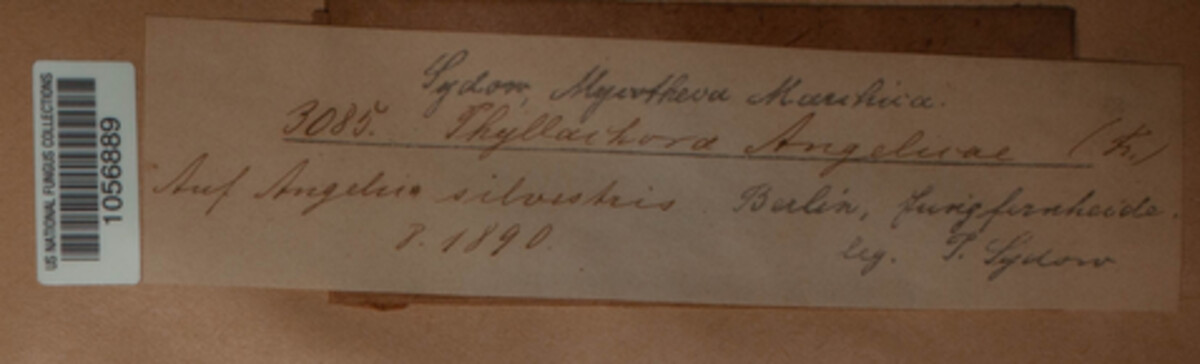 US NATIONAL FUNGUS COLLECTIONS
1056889
Sydow, Mycotheca Marchica.
3085. Phyllachora Angelicae (Fr.)
Auf Angelica silvestris. Berlin, Jungfernheide.
8. 1890. leg. P. Sydow